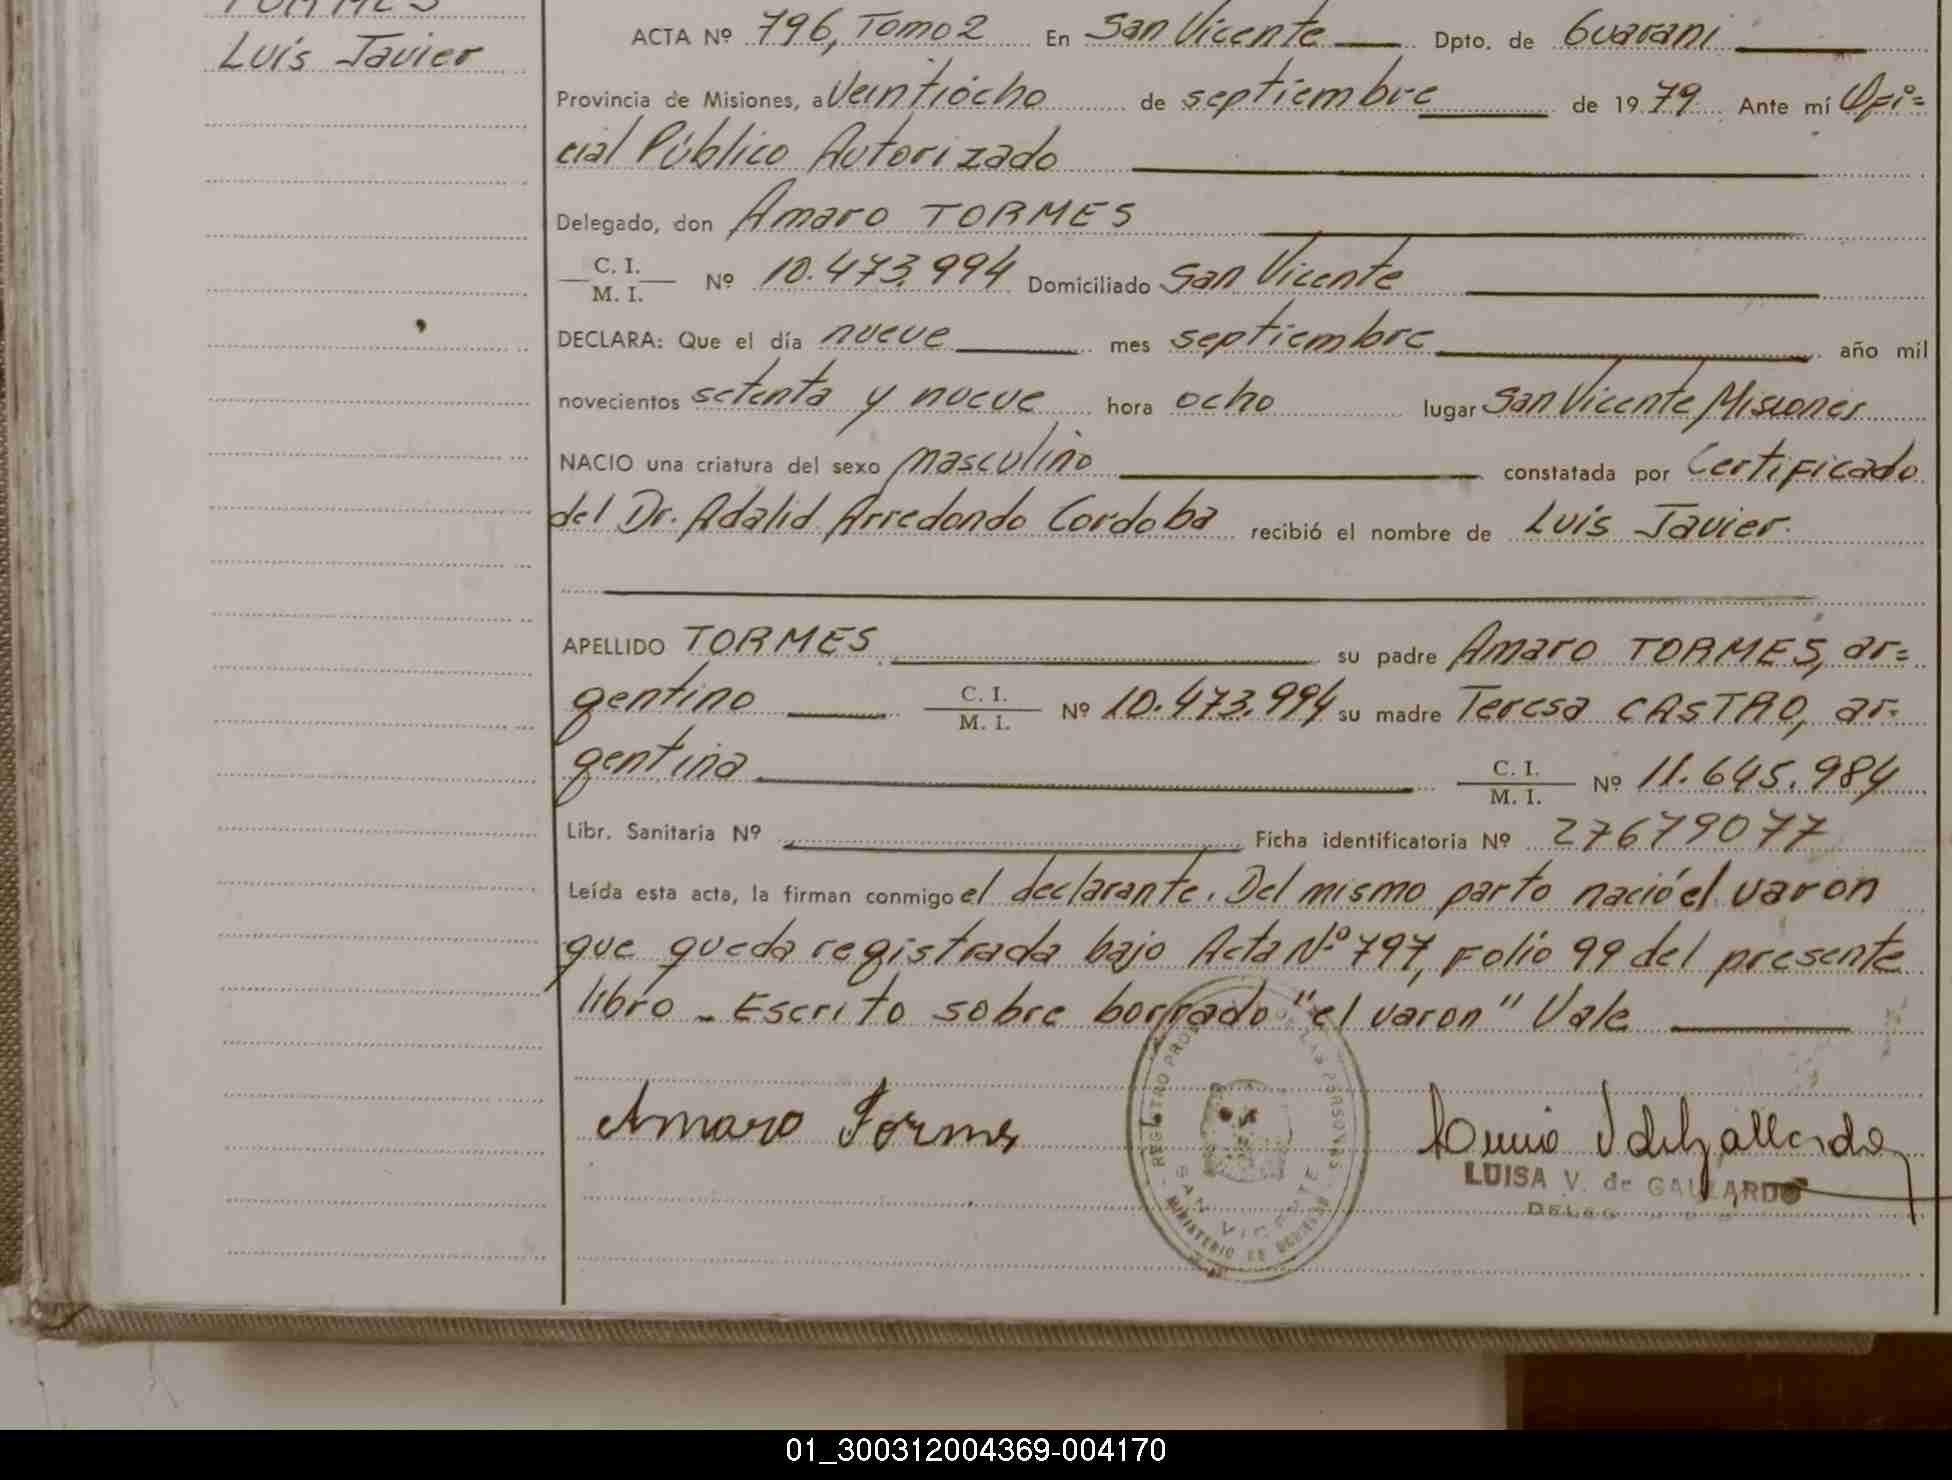 TORMES
Luis Javier
ACTA Nº 796, Tomo 2 En San Vicente Dpto. de Guarani
Provincia de Misiones, a Veintiocho de septiembre de 1979 Ante mí Ofi=
cial Público Autorizado
Delegado, don Amaro TORMES
C. I.
M. I. Nº 10.473.994 Domiciliado San Vicente
DECLARA: Que el día nueve mes septiembre año mil
novecientos setenta y nueve hora ocho lugar San Vicente Misiones
NACIO una criatura del sexo masculino constatada por Certificado
del Dr. Adalid Arredondo Cordoba recibió el nombre de Luis Javier
APELLIDO TORMES su padre Amaro TORMES, ar=
gentino C. I. M. I. Nº 10.473.994 su madre Teresa CASTRO, ar-
gentina C. I. M. I. Nº 11.645.984
Libr. Sanitaria Nº Ficha identificatoria Nº 27679077
Leída esta acta, la firman conmigo el declarante. Del mismo parto nació el varon
que queda registrada bajo Acta Nº 797, Folio 99 del presente
libro - Escrito sobre borrado "el varon" Vale
Amaro Tormes
REGISTRO PRO DE LAS PERSONAS
SAN VICENTE
MINISTERIO DE GOBIERNO
LUISA V. de GALLARDO
01_300312004369-004170